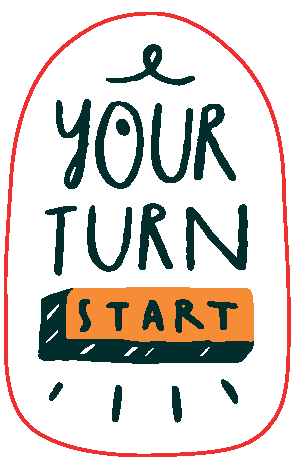 YOUR
TURN
START